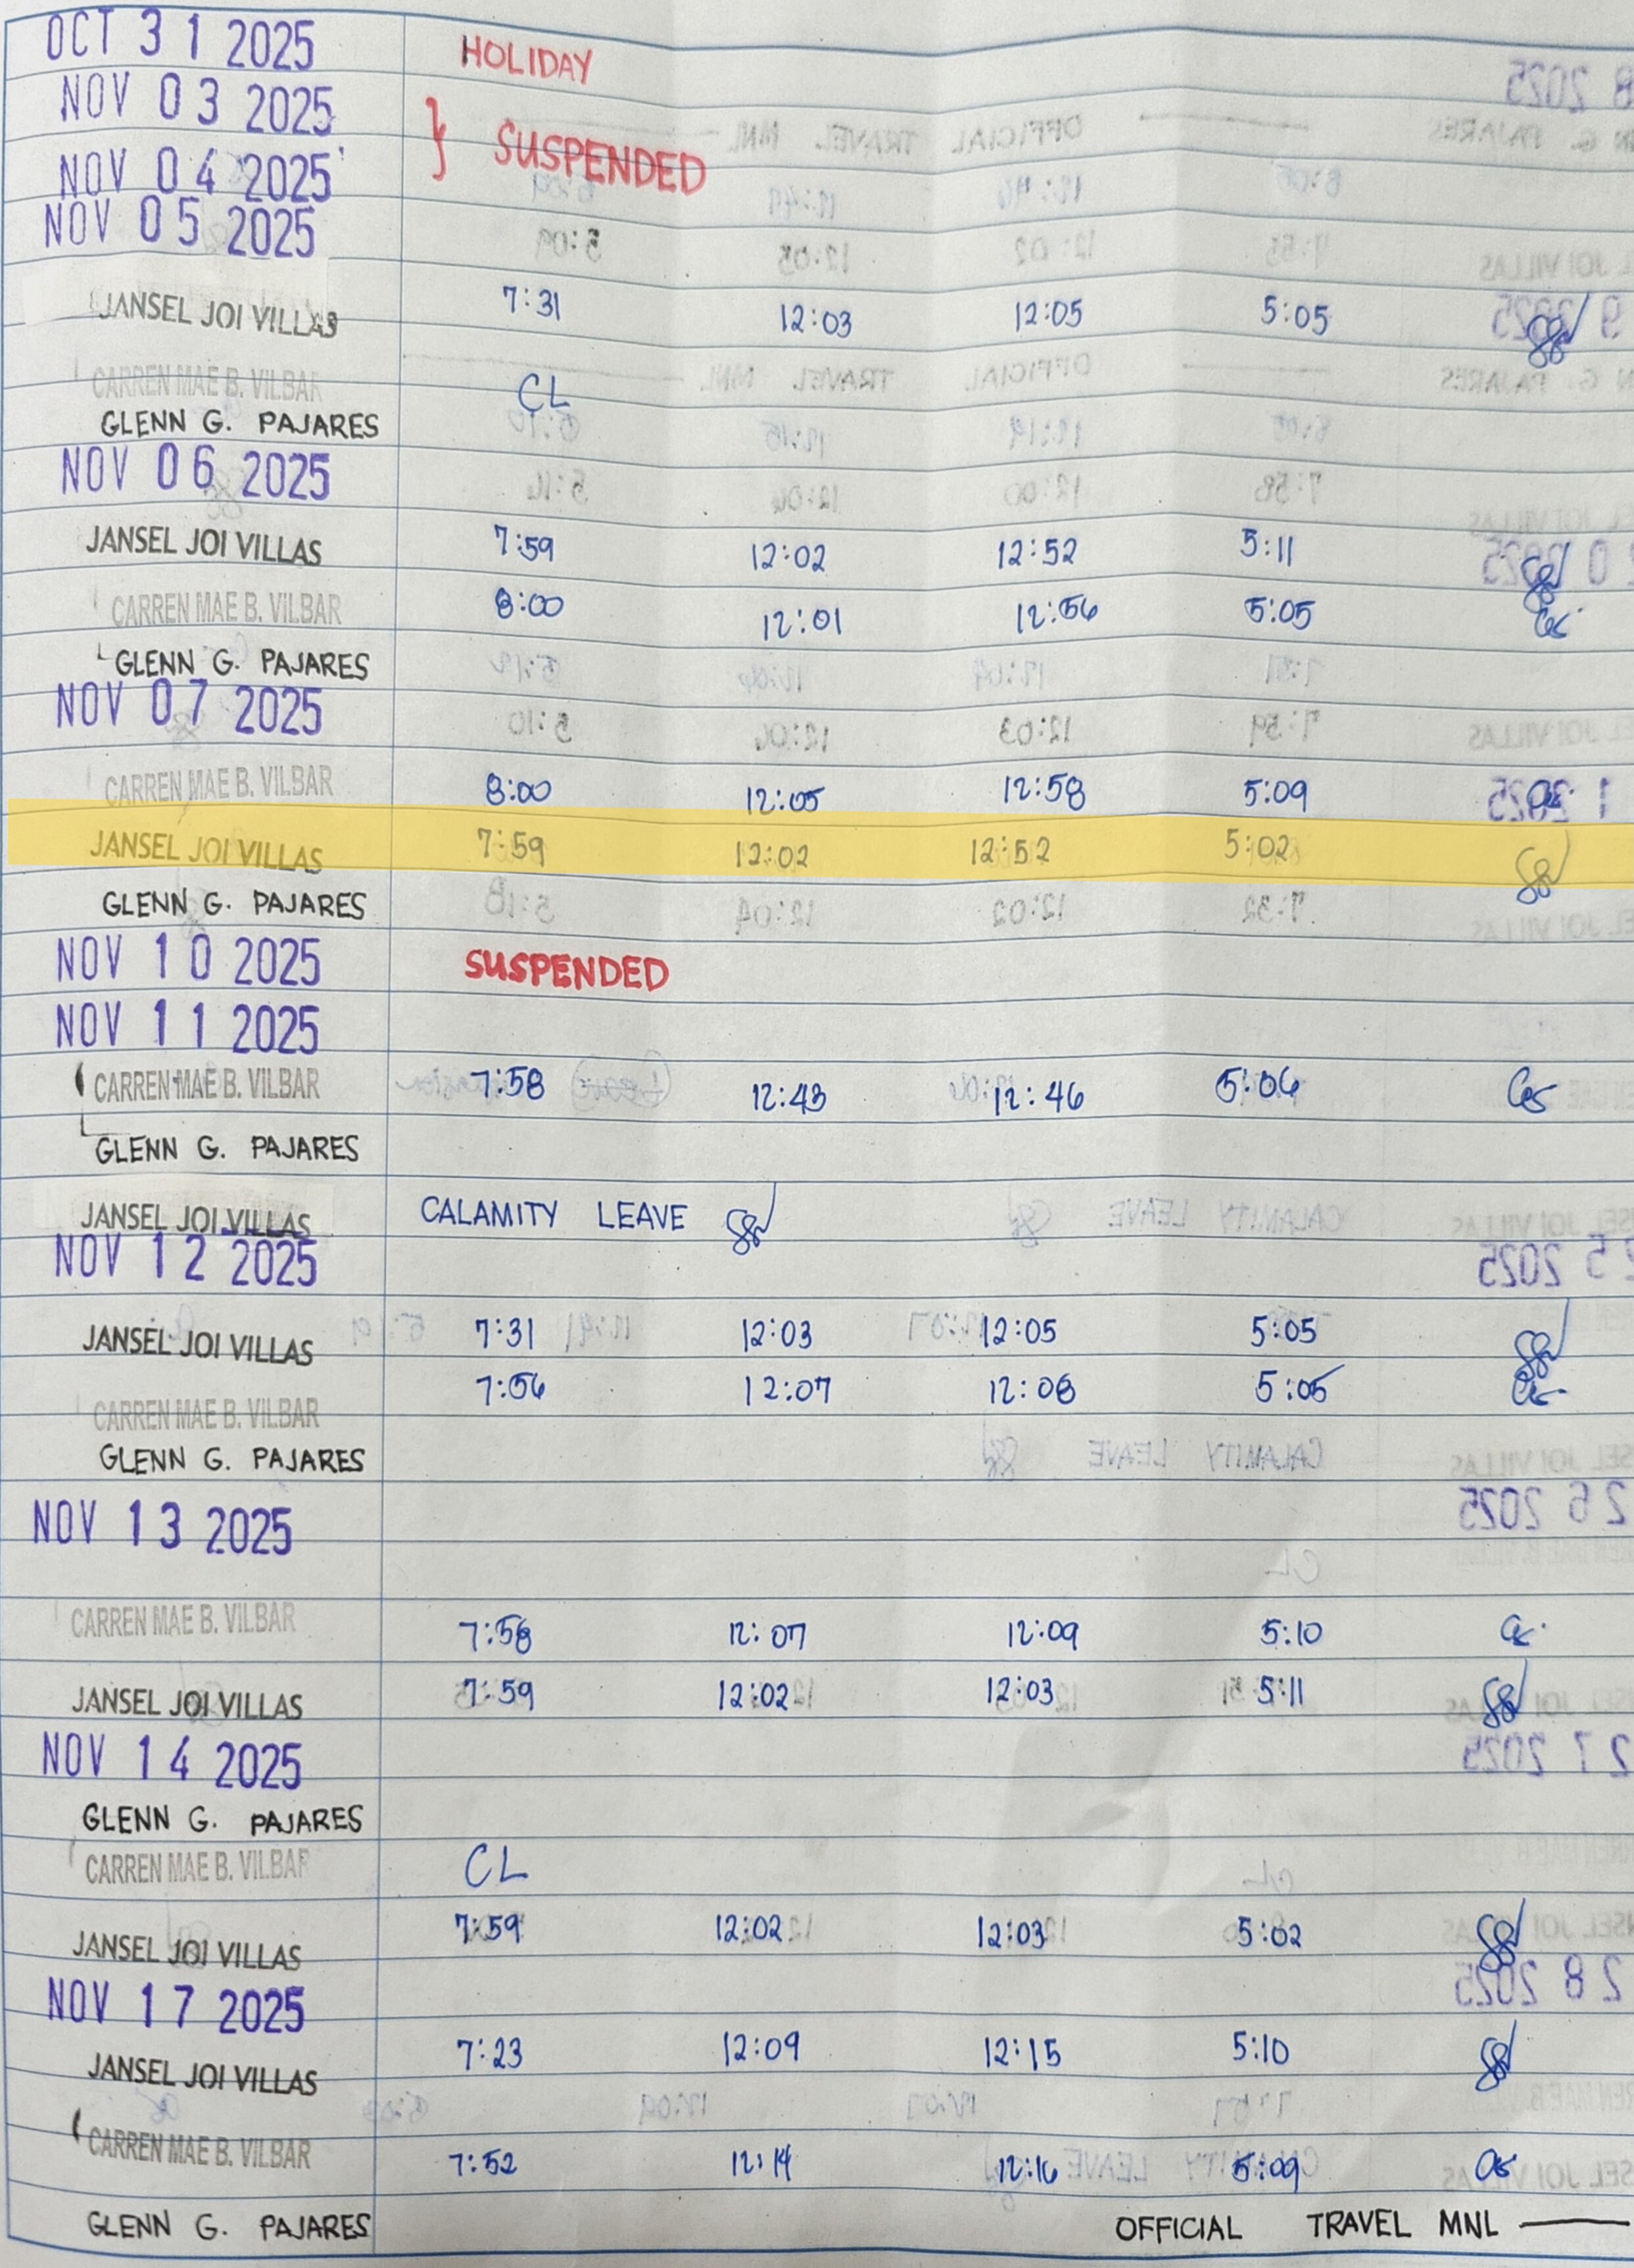 OCT 31 2025 HOLIDAY
NOV 03 2025
NOV 04 2025 } SUSPENDED
NOV 05 2025
JANSEL JOI VILLAS 7:31 12:03 12:05 5:05
CARREN MAE B. VILBAR CL
GLENN G. PAJARES
NOV 06 2025
JANSEL JOI VILLAS 7:59 12:02 12:52 5:11
CARREN MAE B. VILBAR 8:00 12:01 12:56 5:05
GLENN G. PAJARES
NOV 07 2025
CARREN MAE B. VILBAR 8:00 12:05 12:58 5:09
JANSEL JOI VILLAS 7:59 12:02 12:52 5:02
GLENN G. PAJARES
NOV 10 2025 SUSPENDED
NOV 11 2025
CARREN MAE B. VILBAR 7:58 12:43 12:46 5:06
GLENN G. PAJARES
JANSEL JOI VILLAS CALAMITY LEAVE
NOV 12 2025
JANSEL JOI VILLAS 7:31 12:03 12:05 5:05
CARREN MAE B. VILBAR 7:56 12:07 12:08 5:05
GLENN G. PAJARES
NOV 13 2025
CARREN MAE B. VILBAR 7:58 12:07 12:09 5:10
JANSEL JOI VILLAS 7:59 12:02 12:03 5:11
NOV 14 2025
GLENN G. PAJARES
CARREN MAE B. VILBAR CL
JANSEL JOI VILLAS 7:59 12:02 12:03 5:02
NOV 17 2025
JANSEL JOI VILLAS 7:23 12:09 12:15 5:10
CARREN MAE B. VILBAR 7:52 12:14 12:16 5:09
GLENN G. PAJARES OFFICIAL TRAVEL MNL